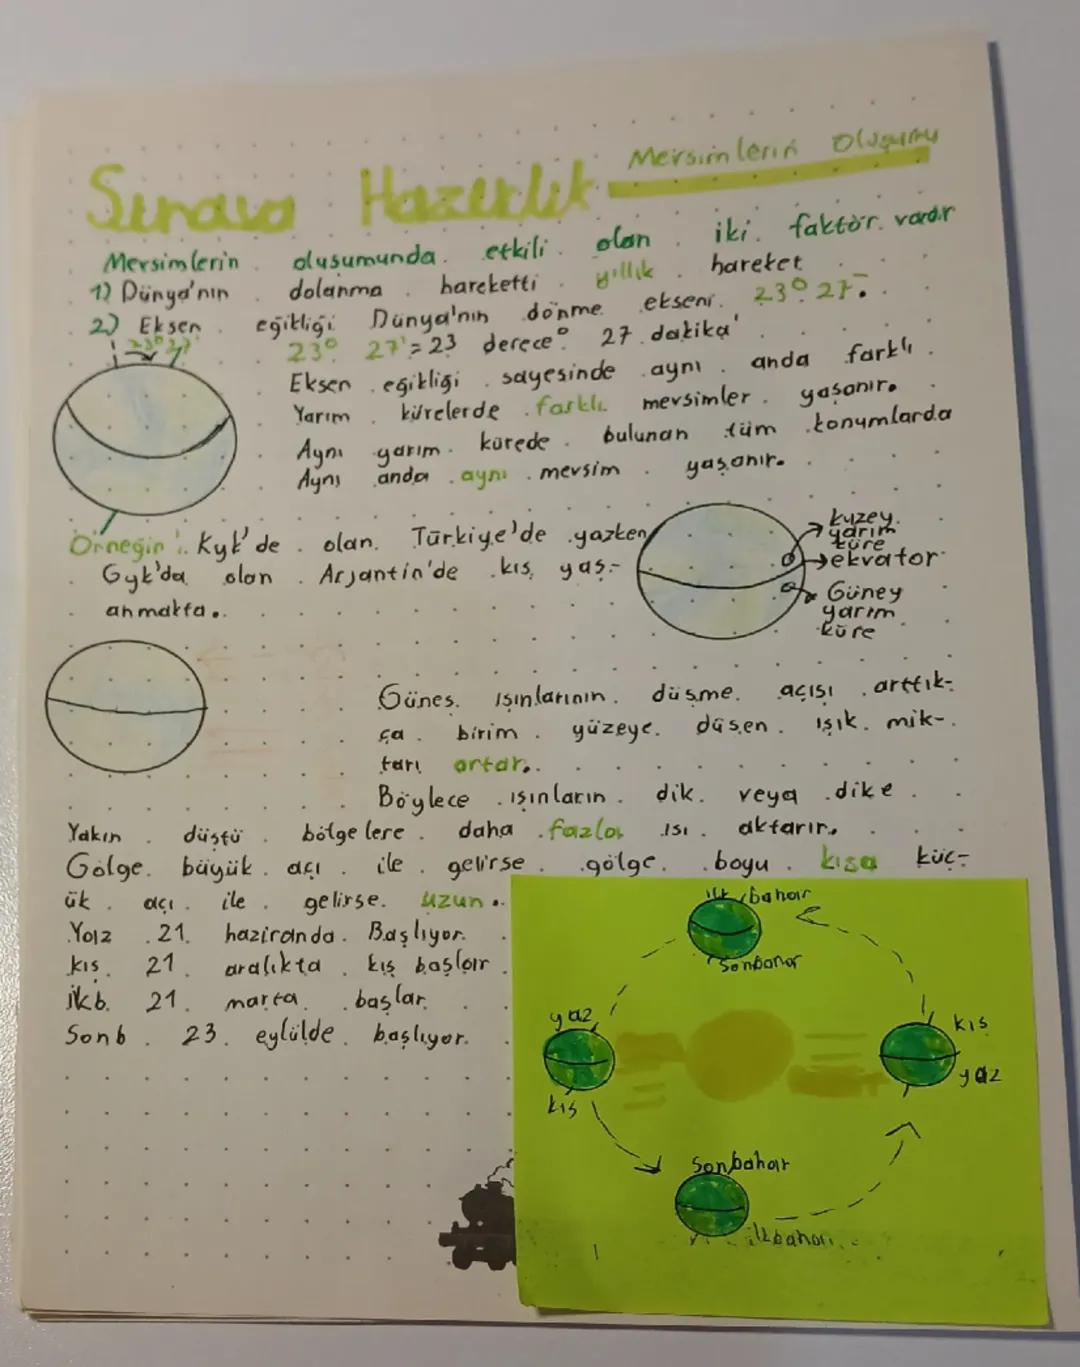 Sınava Hazırlık
Mevsimlerin Oluşumu
Mevsimlerin oluşumunda etkili olan iki faktör vardır
1) Dünya'nın dolanma hareketti yıllık hareket
2) Eksen eğikliği Dünya'nın dönme ekseni 23° 27'.
23° 27'
23° 27' = 23 derece° 27 dakika'
Eksen eğikliği sayesinde aynı anda farklı
Yarım kürelerde farklı mevsimler yaşanır.
Aynı yarım kürede bulunan tüm konumlarda
Aynı anda aynı mevsim yaşanır.
Örneğin: Kyk'de olan Türkiye'de yazken
Gyk'da olan Arjantin'de kış yaş-
anmakta.
kuzey
yarım
küre
ekvator
Güney
yarım
küre
Güneş ışınlarının düşme açısı arttık-
ça birim yüzeye düşen ışık mik-
tarı artar.
Böylece ışınların dik veya dike
Yakın düştü bölgelere daha fazla ısı aktarır.
Gölge büyük açı ile gelirse gölge boyu kısa küç-
ük açı ile gelirse uzun.
Yaz 21 haziranda Başlıyor.
kış 21 aralıkta kış başlar
İkb. 21 marta başlar.
Sonb 23 eylülde başlıyor.
ilkbahar
Sonbahar
yaz
kış
kış
yaz
Sonbahar
ilkbahar